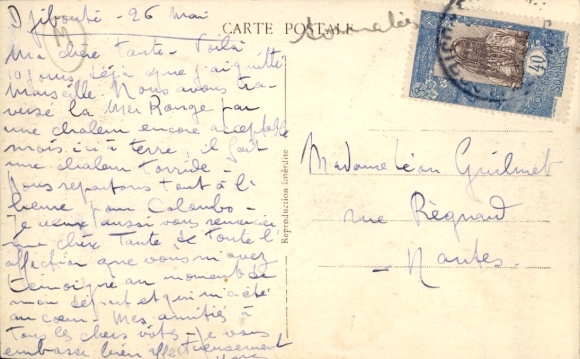 Djibouti - 26 Mai
CARTE POSTALE
Somalie
Ma chère Tante - Voilà
10 jours déjà que j'ai quitté
Marseille. Nous avons tra-
versé la Mer Rouge par
une chaleur encore acceptable
mais ici à terre, il fait
une chaleur torride -
Nous repartons tout à l'
heure pour Colombo -
Je veux aussi vous remercier
ma chère Tante de toute l'
affection que vous m'avez
témoignée au moment de
mon départ et qui m'a été
au cœur - Mes amitiés à
tous les chers vôtres - Je vous
embrasse bien affectueusement
40
Reproduction interdite
Madame Léon Guilmet
rue Régnard
- Nantes -